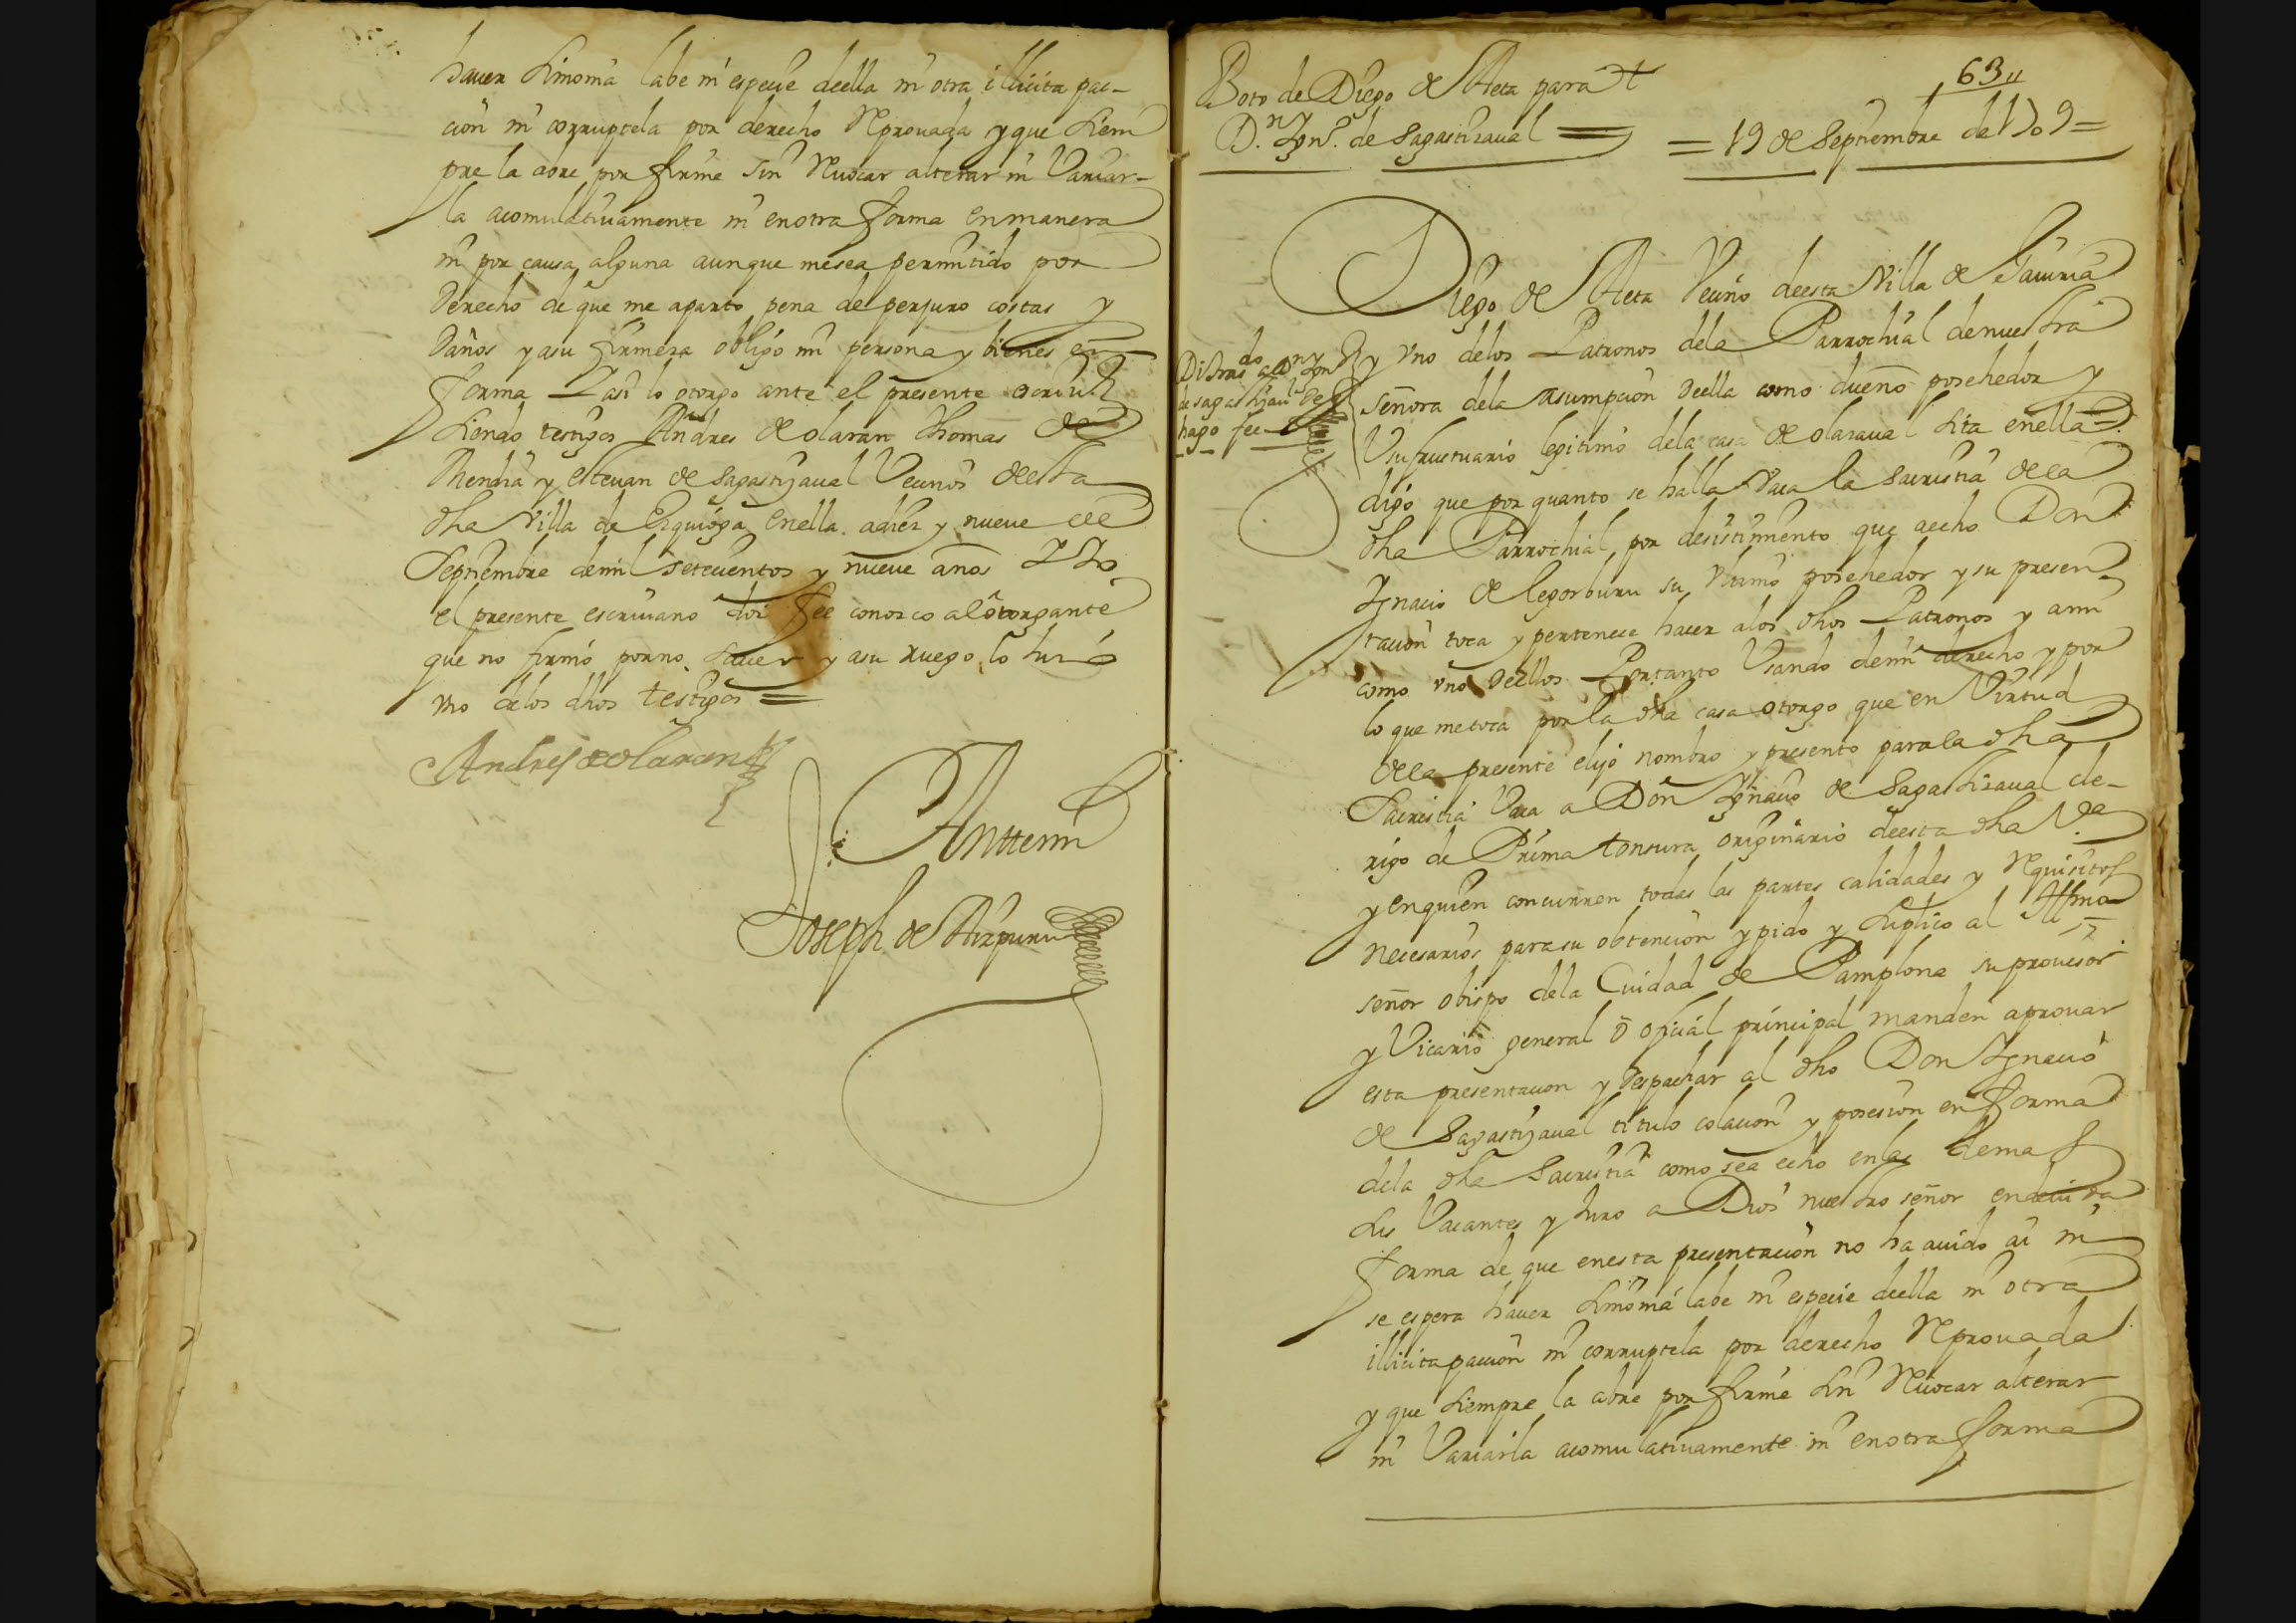 hauer simonia labe ni espeçie deella ni otra illiçita pac-
çion ni corruptela por derecho Reprouada y que siem
pre la abre por firme sin Reuocar alterar ni Variar-
la acomulatiuamente ni en otra forma en manera
ni por causa alguna aunque me sea permitido por
derecho de que me aparto pena de perjuro costas y
daños y a su firmeza obligo mi persona y bienes en
forma Y asi lo otorgo ante el presente escriuº
siendo testigos Andres de olaran Thomas de
Rendia y esteuan de sagastiçaual Veçinos deesta
dha Villa de Ezquioga en ella a diez y nueue de
Septiembre de mil seteçientos y nueue años Y Yo
el presente escriuano doi fee conosco al otorgante
que no firmó por no sauer y a su ruego lo hiço
vno de los dhos testigos =
Andres de olaran
Anttemi
Joseph de Aizpuru
63
Boto de Diego de Aeta para
D.n Ygn.º de Sagastiçaual =
= 19 de Septiembre de 1709 =
Diego de Aeta Veçino deesta Villa de Gauiria
y vno delos Patronos dela Parrochial de nuestra
señora dela Asumpçion deella como dueño posehedor y
Vsufructuario legitimo dela casa de olaraual sita en ella
digo que por quanto se halla Vaca la sacristia de la
dha Parrochial por desistimiento que aecho Don
Ygnacio de legorburu su vltimo posehedor y su presen
taçion toca y perteneçe hacer alos dhos Patronos y a mi
como vno deellos Por tanto Vsando de mi derecho y por
lo que me toca por la dha casa otorgo que en Virtud
de la presente elijo nombro y presento para la dha
Sacristia Vaca a Don Ygnaçio de Sagastiçaual cle-
rigo de Prima tonsura originario deesta dha Vª
y en quien concurren todas las partes calidades y Requisitos
neçesarios para su obtençion y pido y suplico al Illmo
señor obispo dela Ciudad de Pamplona su prouisor
y Vicario general ó ofiçial prinçipal manden aprouar
esta presentaçion y despachar al dho Don Ygnaçio
de Sagastiçaual titulo colaçion y posesion en forma
dela dha Sacristia como sea echo en las demas
sus Vacantes y Juro a Dios nuestro señor en deuida
forma de que en esta presentaçion no ha auido ai ni
se espera hauer simonia labe ni espeçie deella ni otra
illiçita pacçion ni corruptela por derecho Reprouada
y que siempre la abre por firme sin Reuocar alterar
ni Variarla acomulatiuamente ni en otra forma
Di tras.do a D.n Ygn.º
de sagastiçaual de
hago fee